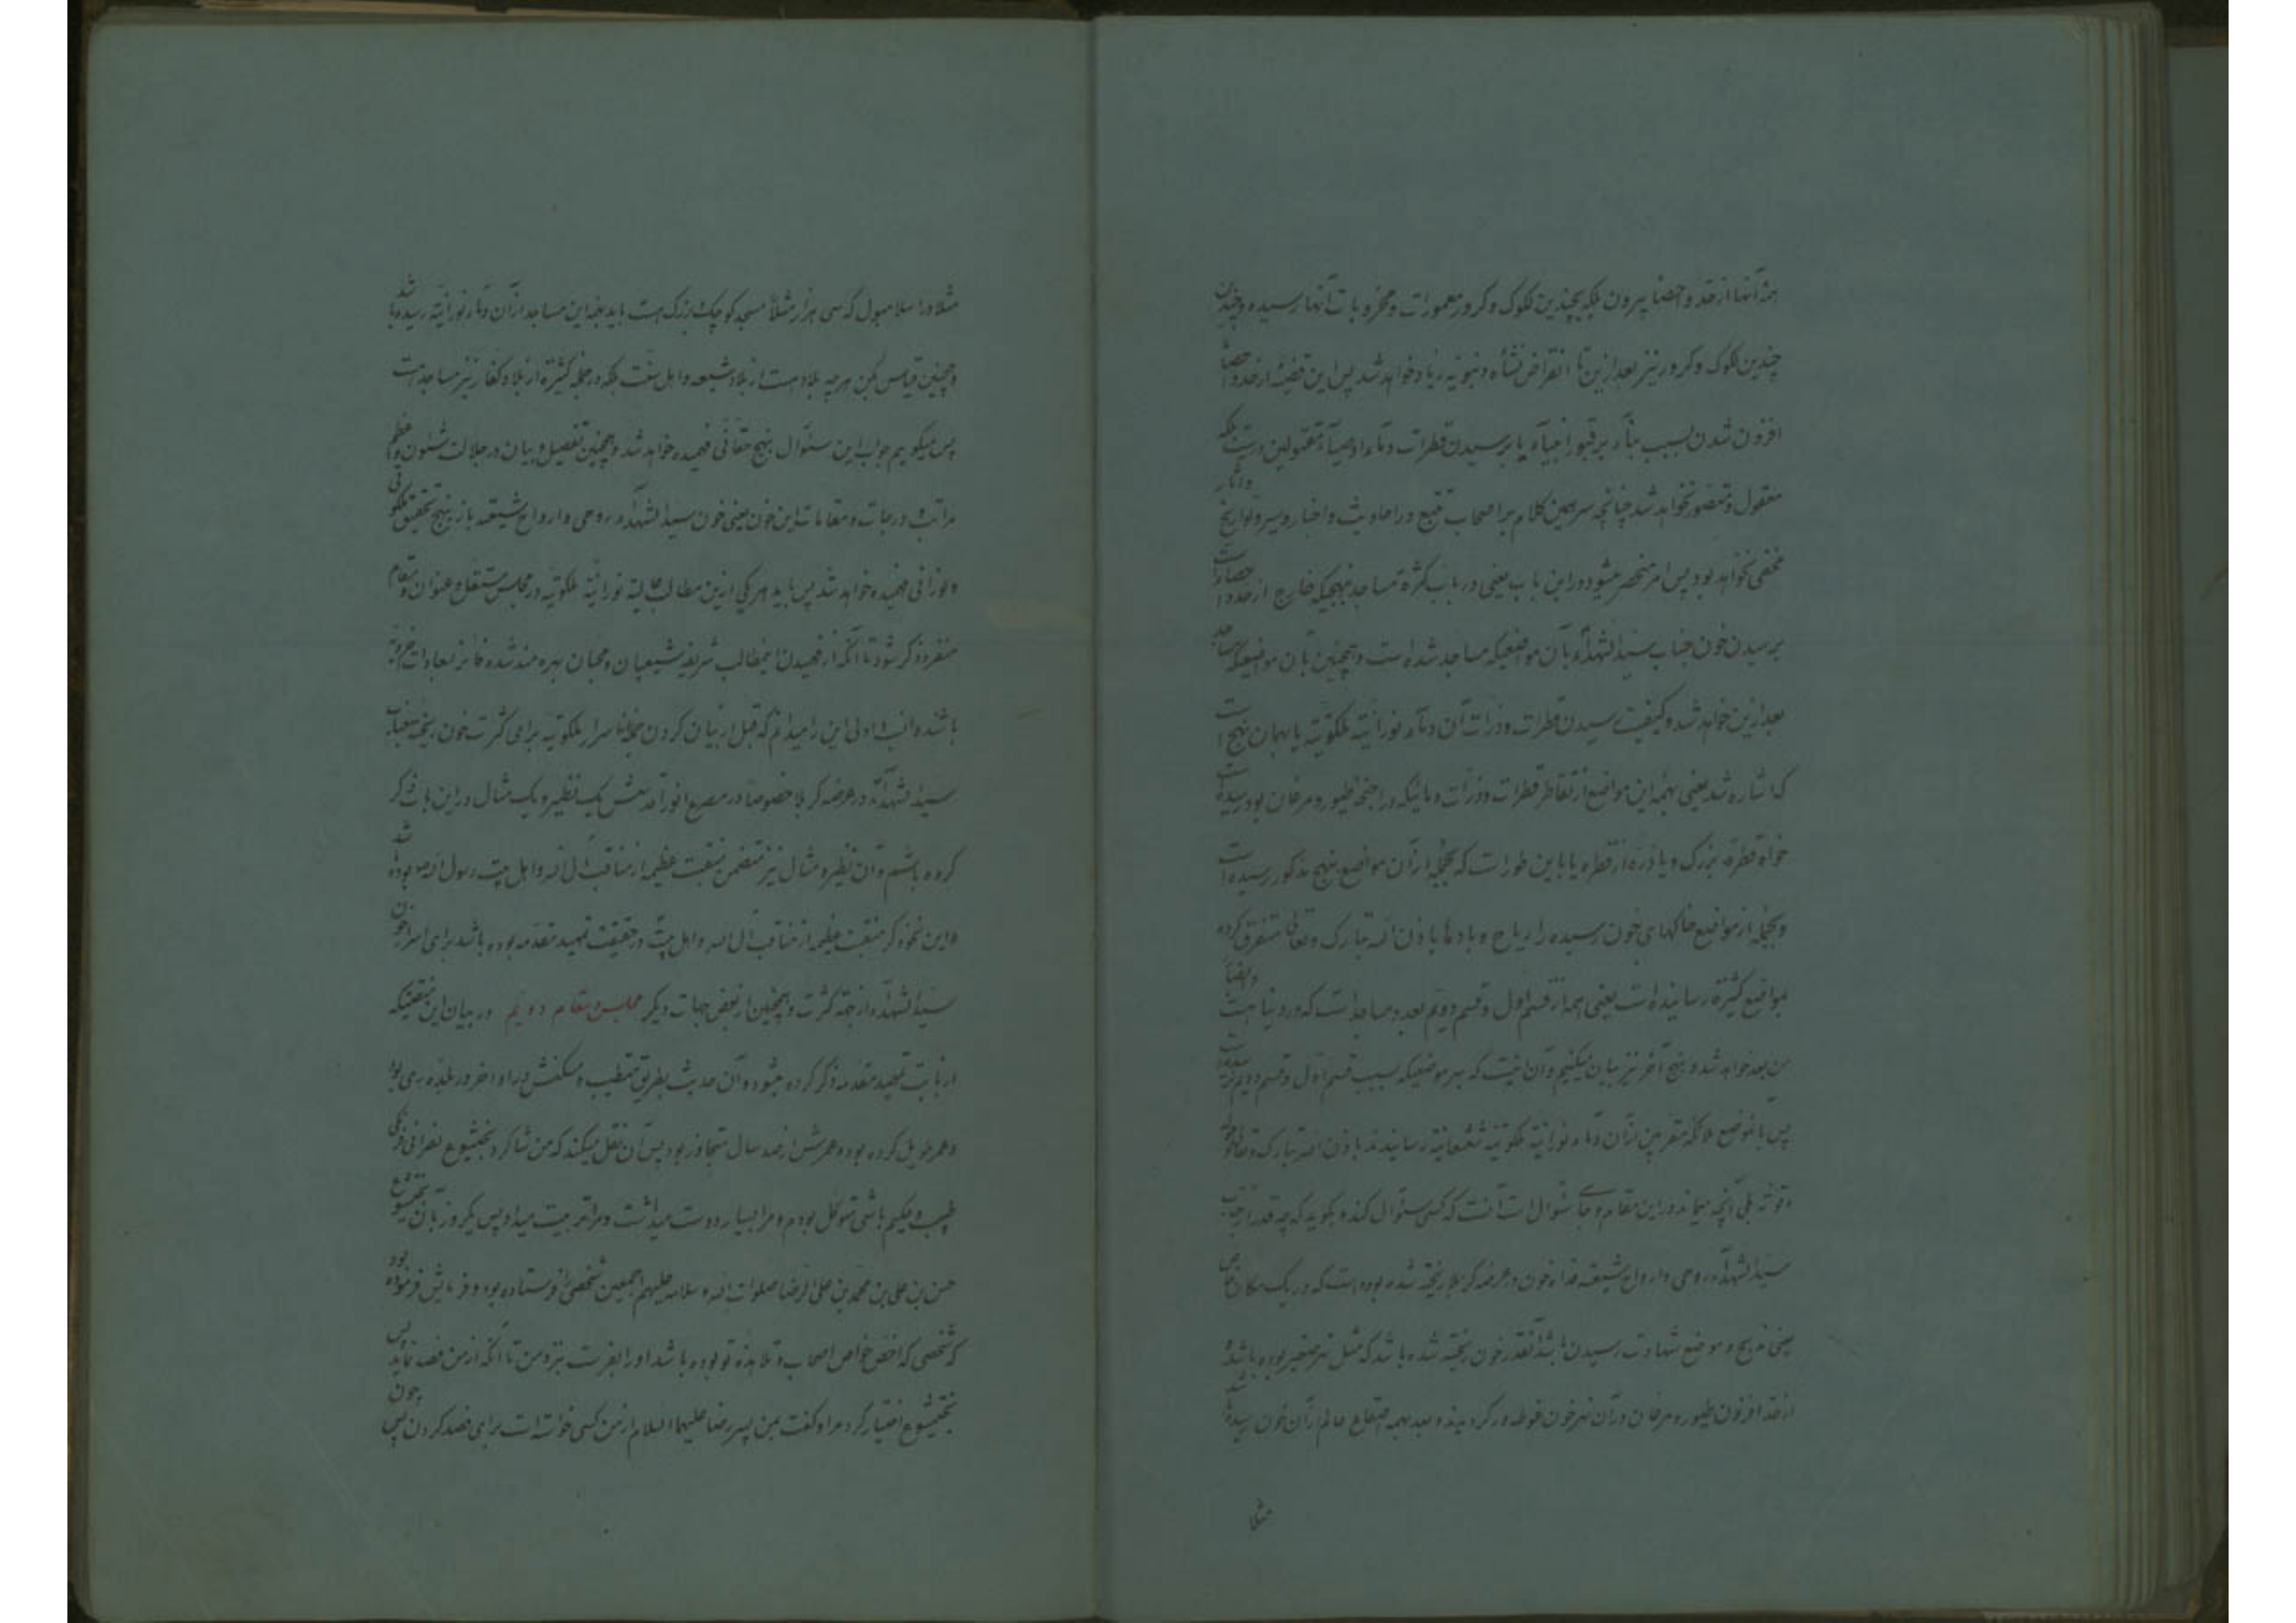 همه آنها از حد و احصا بیرون بلکه بچندین لکوک و کرور معمورات و مخروبات آنها رسیده و چندین
چندین لکوک و کرور نیز بعد ازین تا انقراض نشأه دنیویه زیاد خواهد شد پس این قضیه از حد و احصا
افزون شدن بسبب بناء بر قبور انبیاء یا برسیدن قطرات دماء اوصیآء مقتولین است بلکه
معقول و متصور نخواهد شد چنانچه سر این کلام بر اصحاب تتبع در احادیث و اخبار و سیر و تواریخ
مخفی نخواهد بود پس امر منحصر میشود در این باب یعنی در باب کثرة مساجد بنهجیکه خارج از حد و احصا است
برسیدن خون جناب سید الشهدآء بآن مواضعیکه مساجد شده است و همچنین بآن مواضعیکه مساجد
بعد ازین خواهد شد و کیفیت رسیدن قطرات و ذرات آن دمآء نورانیّة ملکوتیّة یا بهمان نهج است
که اشاره شد یعنی بهمه این مواضع از تقاطر قطرات و ذرات دمائیکه در اجنحه طیور و مرغان بود رسیده است
خواه قطره بزرک و یا ذره از قطره یا باین طور است که بجمله از آن مواضع بنهج مذکور رسیده است
و بجمله از مواضع خاکهای خون رسیده را ریاح و بادها باذن الله تبارک و تعالی متفرق کرده
بمواضع کثیرة رسانیده است یعنی همه از قسم اول و قسم دویم بعدد مساجد است که در دنیا هست
من بعد خواهد شد و نهج آخر نیز بیان میکنیم و آن اینست که بهر موضعیکه بسبب قسم اول و قسم دویم نرسیده است
پس بآنموضع ملائکه مقربین از آن دماء نورانیّة ملکوتیّة شعشعانیّة رسانیدند باذن الله تبارک و تعالی
و قوته بلی آنچه میماند در این مقام و جای سئوال است آنست که کسی سئوال کند و بکوید که چه قدر از جناب
سید الشهدآء روحی و ارواح شیعته فداه خون در عرصه کربلا ریخته شده بوده است که در یک مکان خاص
یعنی مذبح و موضع شهادت رسیدن باشد آنقدر خون ریخته شده باشد که مثل نهر صغیر بوده باشد
از حد افزون طیور و مرغان در آن نهر خون غوطه ور کردیدند و بعد بهمه اصقاع عالم از آن خون رسیده
مثلا
مثلا در اسلامبول که سی هزار مثلا مسجد کوچک و بزرک هست باید بهمه این مساجد از آن دماء نورانیّة رسیده باشد
و همچنین قیاس کن هر چه بلاد هست از بلاد شیعه و اهل سنت بلکه در جمله کثیرة از بلاد کفار نیز مساجد است
پس میکوییم جواب این سئوال بنهج حقانی فهمیده خواهد شد و همچنین تفصیل و بیان در جلالت شئون و عظم
مراتب و درجات و مقامات این خون یعنی خون سید الشهدآء روحی و ارواح شیعته باز بنهج تحقیق ملکوتی
و نورانی فهمیده خواهد شد پس باید هر یکی ازین مطالب عالیة نورانیّة ملکوتیّة در مجلس مستقل و عنوان و مقام
منفرد ذکر شود تا آنکه از فهمیدن اینمطالب شریفه شیعیان و محبان بهره مند شده فایز بسعادات اخرویّة
باشند و انسب و اولی این را میدانم که قبل از بیان کردن جمله اسرار ملکوتیّة برای کثرت خون ریخته جناب
سید الشهدآء در عرصه کربلا خصوصا در مصرع انور اقدسش یک نظیر و یک مثال در این باب ذکر
کرده باشم و آن نظیر و مثال نیز متضمن منقبت عظیمه از مناقب آل الله و اهل بیت رسول الله ص بوده باشد
و این نحو ذکر منقبت عظیمه از مناقب آل الله و اهل بیت در حقیقت تمهید مقدمه بوده باشد برای اسرار خون
سید الشهدآء از جهة کثرت و همچنین از بعض جهات دیکر مجلس و مقام دویم در بیان این منقبتیکه
از بابت تمهید مقدمه ذکر کرده میشود و آن حدیث بطریق متطبب و مسکنش در اواخر در بلده ری بود
و عمر طویل کرده بود و عمرش از صد سال متجاوز بود پس آن نقل میکند که من شاکرد بختیشوع نصرانی
طبیب و حکیم باشی متوکل بودم و مرا بسیار دوست میداشت و مرا تربیت میداد پس یکروز بآن بختیشوع
حسن بن علی بن محمد بن علی الرضا صلوات الله و سلامه علیهم اجمعین شخصی را فرستاده بود و فرمایش فرموده بود
که شخصی که اخص خواص اصحاب و تلامذه تو بوده باشد او را بفرست بنزد من تا آنکه از من فصد نماید پس
بختیشوع اختیار کرد مرا و کفت بمن پسر رضا علیهما السلام از من کسی خواسته است برای فصد کردن پس چون